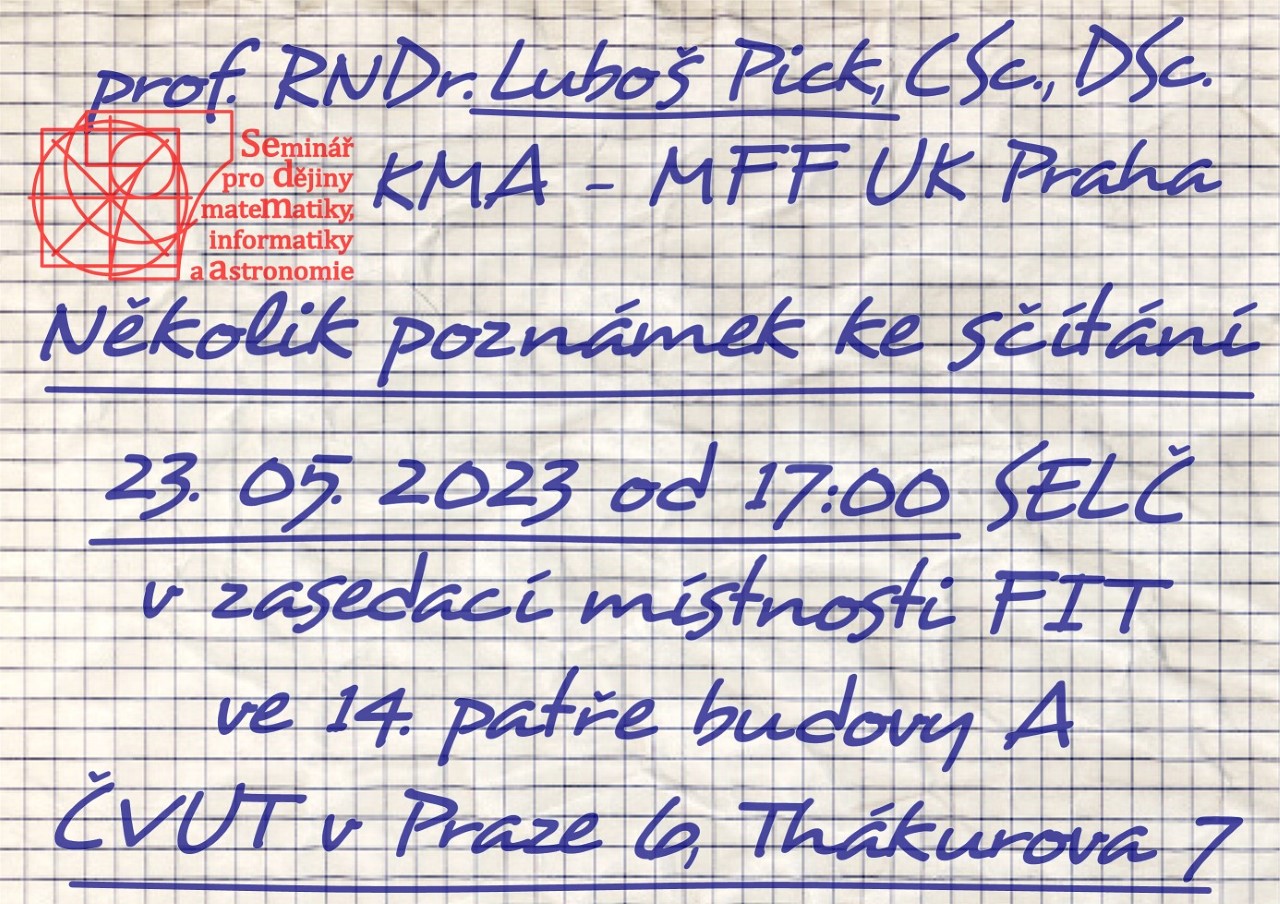 prof. RNDr. Luboš Pick, CSc., DSc.
Seminář
pro dějiny
mateMatiky,
informatiky
a astronomie
KMA - MFF UK Praha
Několik poznámek ke sčítání
23. 05. 2023 od 17:00 SELČ
v zasedací místnosti FIT
ve 14. patře budovy A
ČVUT v Praze 6, Thákurova 7